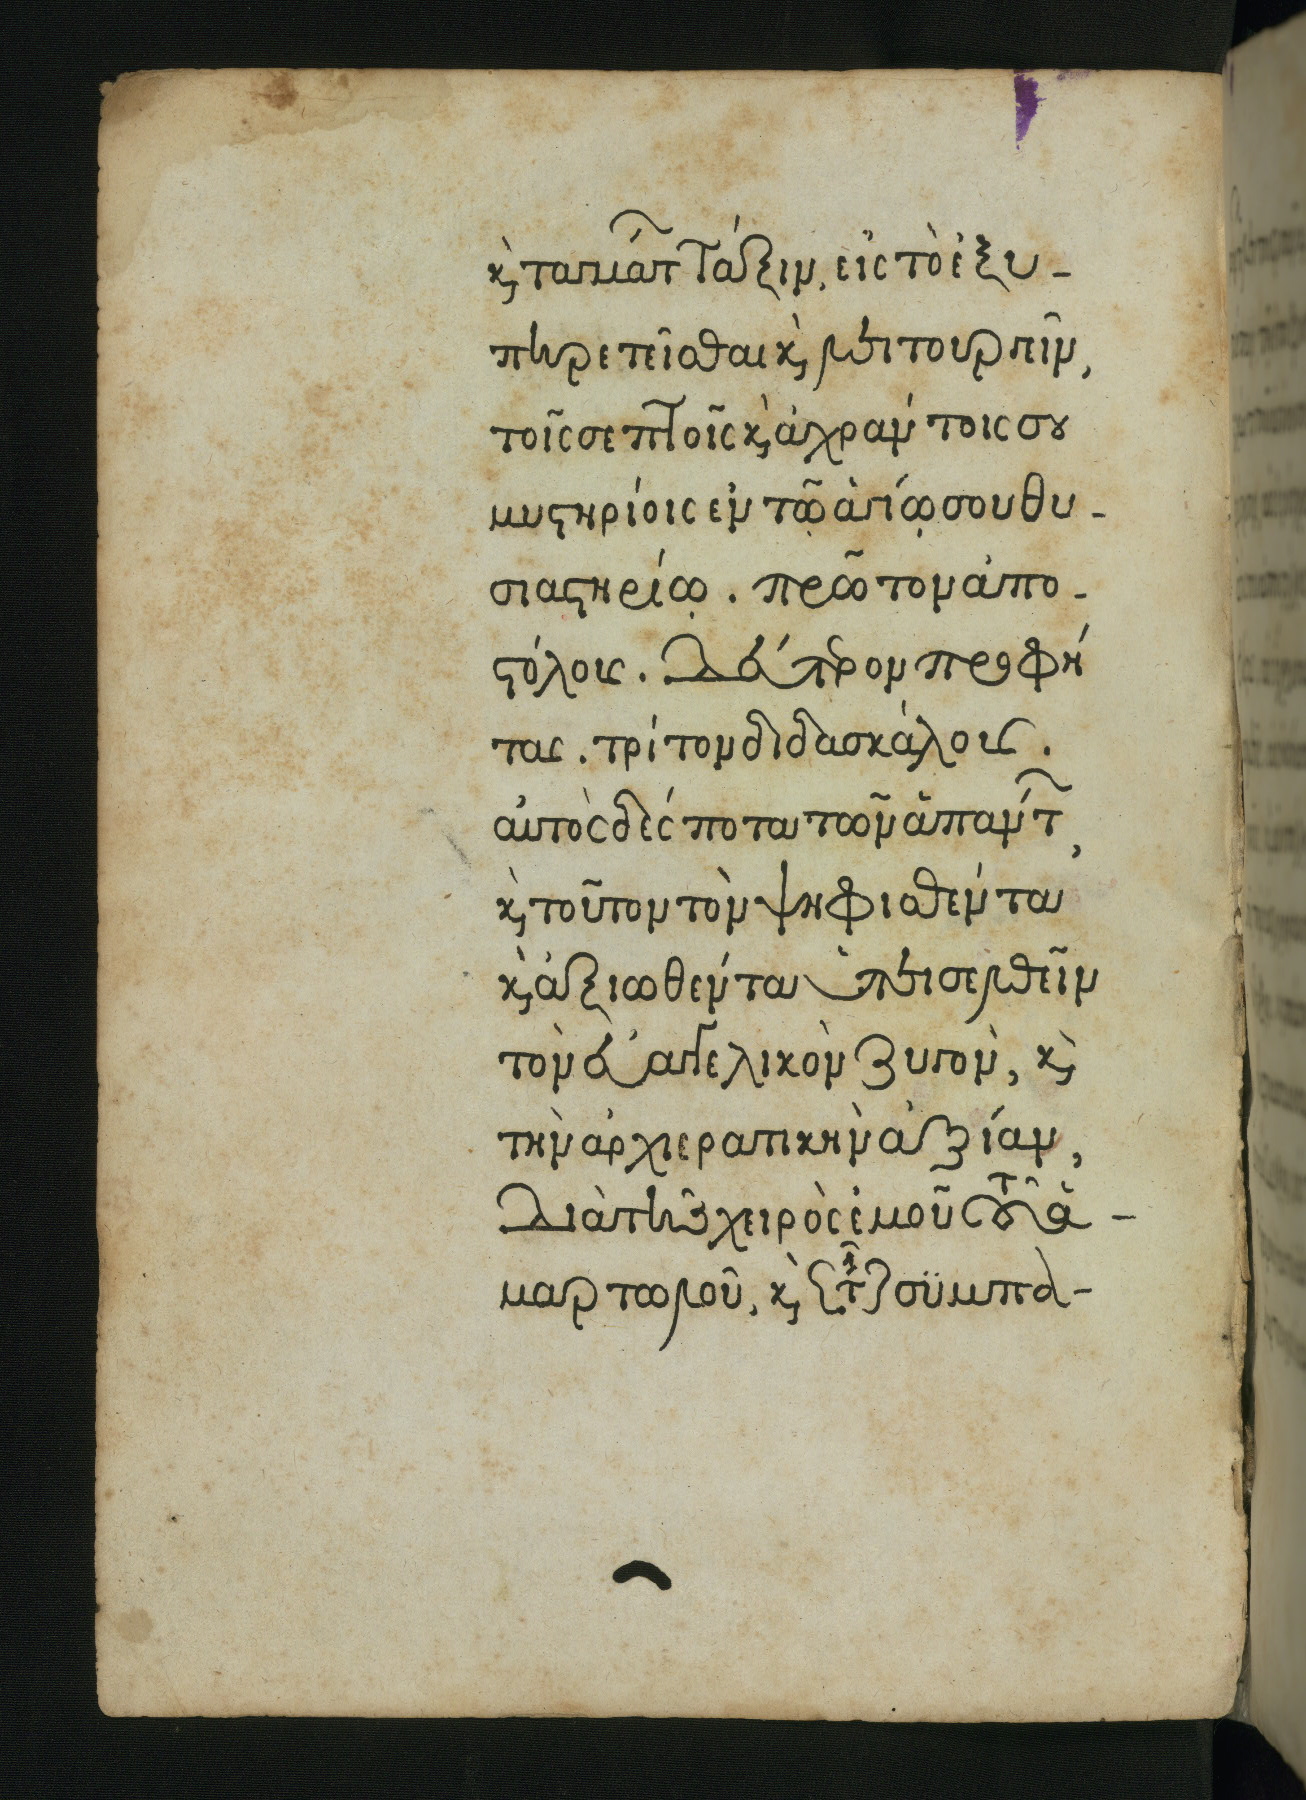 κ(αὶ) ταγμάτ(ων) τάξιν, εἰς τὸ ἐξυ-
πηρετεῖσθαι κ(αὶ) λειτουργεῖν,
τοῖς σεπτοῖς κ(αὶ) ἀχράντοις σου
μυστηρίοις ἐν τῷ ἁγίῳ σου θυ-
σιαστηρίῳ. πρῶτον ἀπο-
στόλους. Δεύτερον προφή
τας. τρίτον διδασκάλους.
αὐτὸς δέσποτα τῶν ἁπάντ(ων),
κ(αὶ) τοῦτον τὸν ψηφισθέντα
κ(αὶ) ἀξιωθέντα ὑπεισελθεῖν
τὸν εὐαγγελικὸν ζυγὸν, κ(αὶ)
τὴν ἀρχιερατικὴν ἀξίαν,
Διὰ τῆς χειρὸς ἐμοῦ τοῦ ἁ-
μαρτωλοῦ, κ(αὶ) τῶν συμπα-